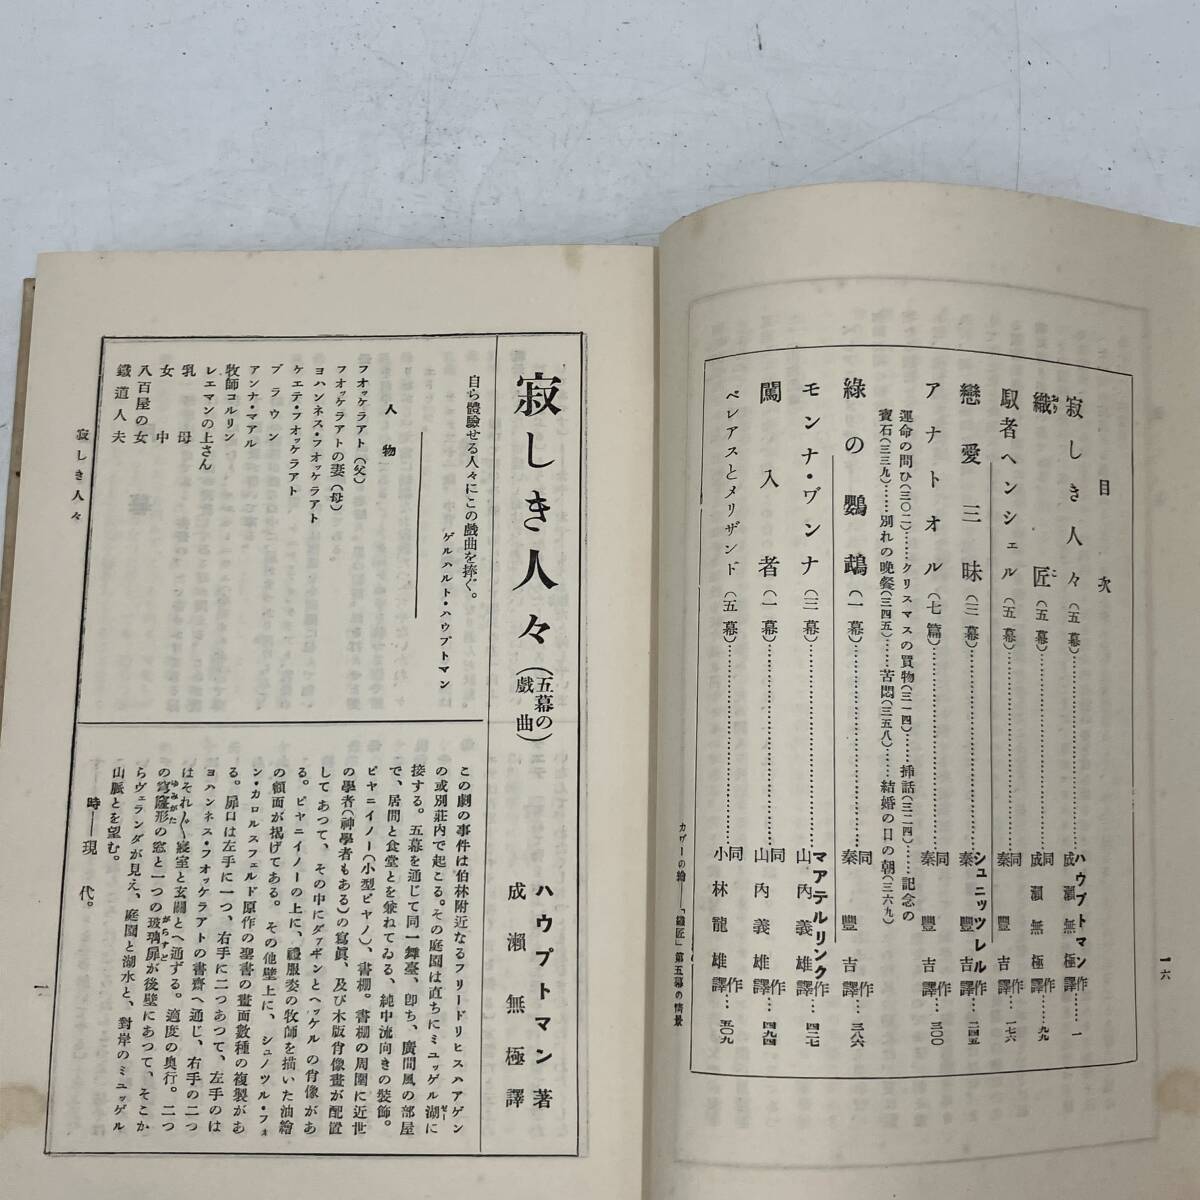 目次
寂しき人々(五幕)……ハウプトマン作 成瀨無極譯……一
織匠(五幕)……同作 成瀨無極譯……九九
おりこ
馭者ヘンシェル(五幕)……同作 秦豐吉譯……一七六
戀愛三昧(三幕)……シュニッツレル作 秦豐吉譯……二四五
アナトオル(七篇)……同作 秦豐吉譯……三〇〇
運命の問ひ(三〇二)……クリスマスの買物(三一四)……挿話(三二四)……記念の
寶石(三三九)……別れの晩餐(三四五)……苦悶(三五八)……結婚の日の朝(三六九)
綠の鸚鵡(一幕)……同作 秦豐吉譯……三八六
モンナ・ヴンナ(三幕)……マアテルリンク作 山內義雄譯……四二七
闖入者(一幕)……同作 山內義雄譯……四九四
ペレアスとメリザンド(五幕)……同作 小林龍雄譯……五〇九
カザーの繪——「織匠」第五幕の情景
一六
寂しき人々(五幕の戲曲)
ハウプトマン著
成瀨無極譯
自ら體驗せる人々にこの戲曲を捧ぐ。
ゲルハルト・ハウプトマン
人物
フオッケラアト(父)
フオッケラアトの妻(母)
ヨハンネス・フオッケラアト
ケエテ・フオッケラアト
ブラウン
アンナ・マアル
牧師コルリン
レエマンの上さん
乳母
女中
八百屋の女
鐵道人夫
この劇の事件は伯林附近なるフリードリヒスハアゲン
の或別莊內で起こる。その庭園は直ちにミュッゲル湖に
ゼー
接する。五幕を通じて同一舞臺、卽ち、廣間風の部屋
で、居間と食堂とを兼ねてゐる、純中流向きの裝飾。
ピヤニイノー(小型ピヤノ)、書棚。書棚の周圍に近世
の學者(神學者もある)の寫眞、及び木版肖像畫が配置
してあつて、その中にダァギンとヘッケルの肖像があ
る。ピヤニイノーの上に、禮服姿の牧師を描いた油繪
の額面が揭げてある。その他壁上に、シュノツル・フォ
ン・カロルスフェルド原作の聖書の畫面數種の複製があ
る。扉口は左手に一つ、右手に二つあつて、左手のは
ヨハンネス・フオッケラアトの書齋へ通じ、右手の二つ
はそれ〲寢室と玄關とへ通ずる。適度の奧行。二つ
の穹窿形の窓と一つの玻璃扉が後壁にあつて、そこか
ゆみがた
がらすど
らヴェランダが見え、庭園と湖水と、對岸のミュッゲル
山脈とを望む。
時——現代。
寂しき人々
一